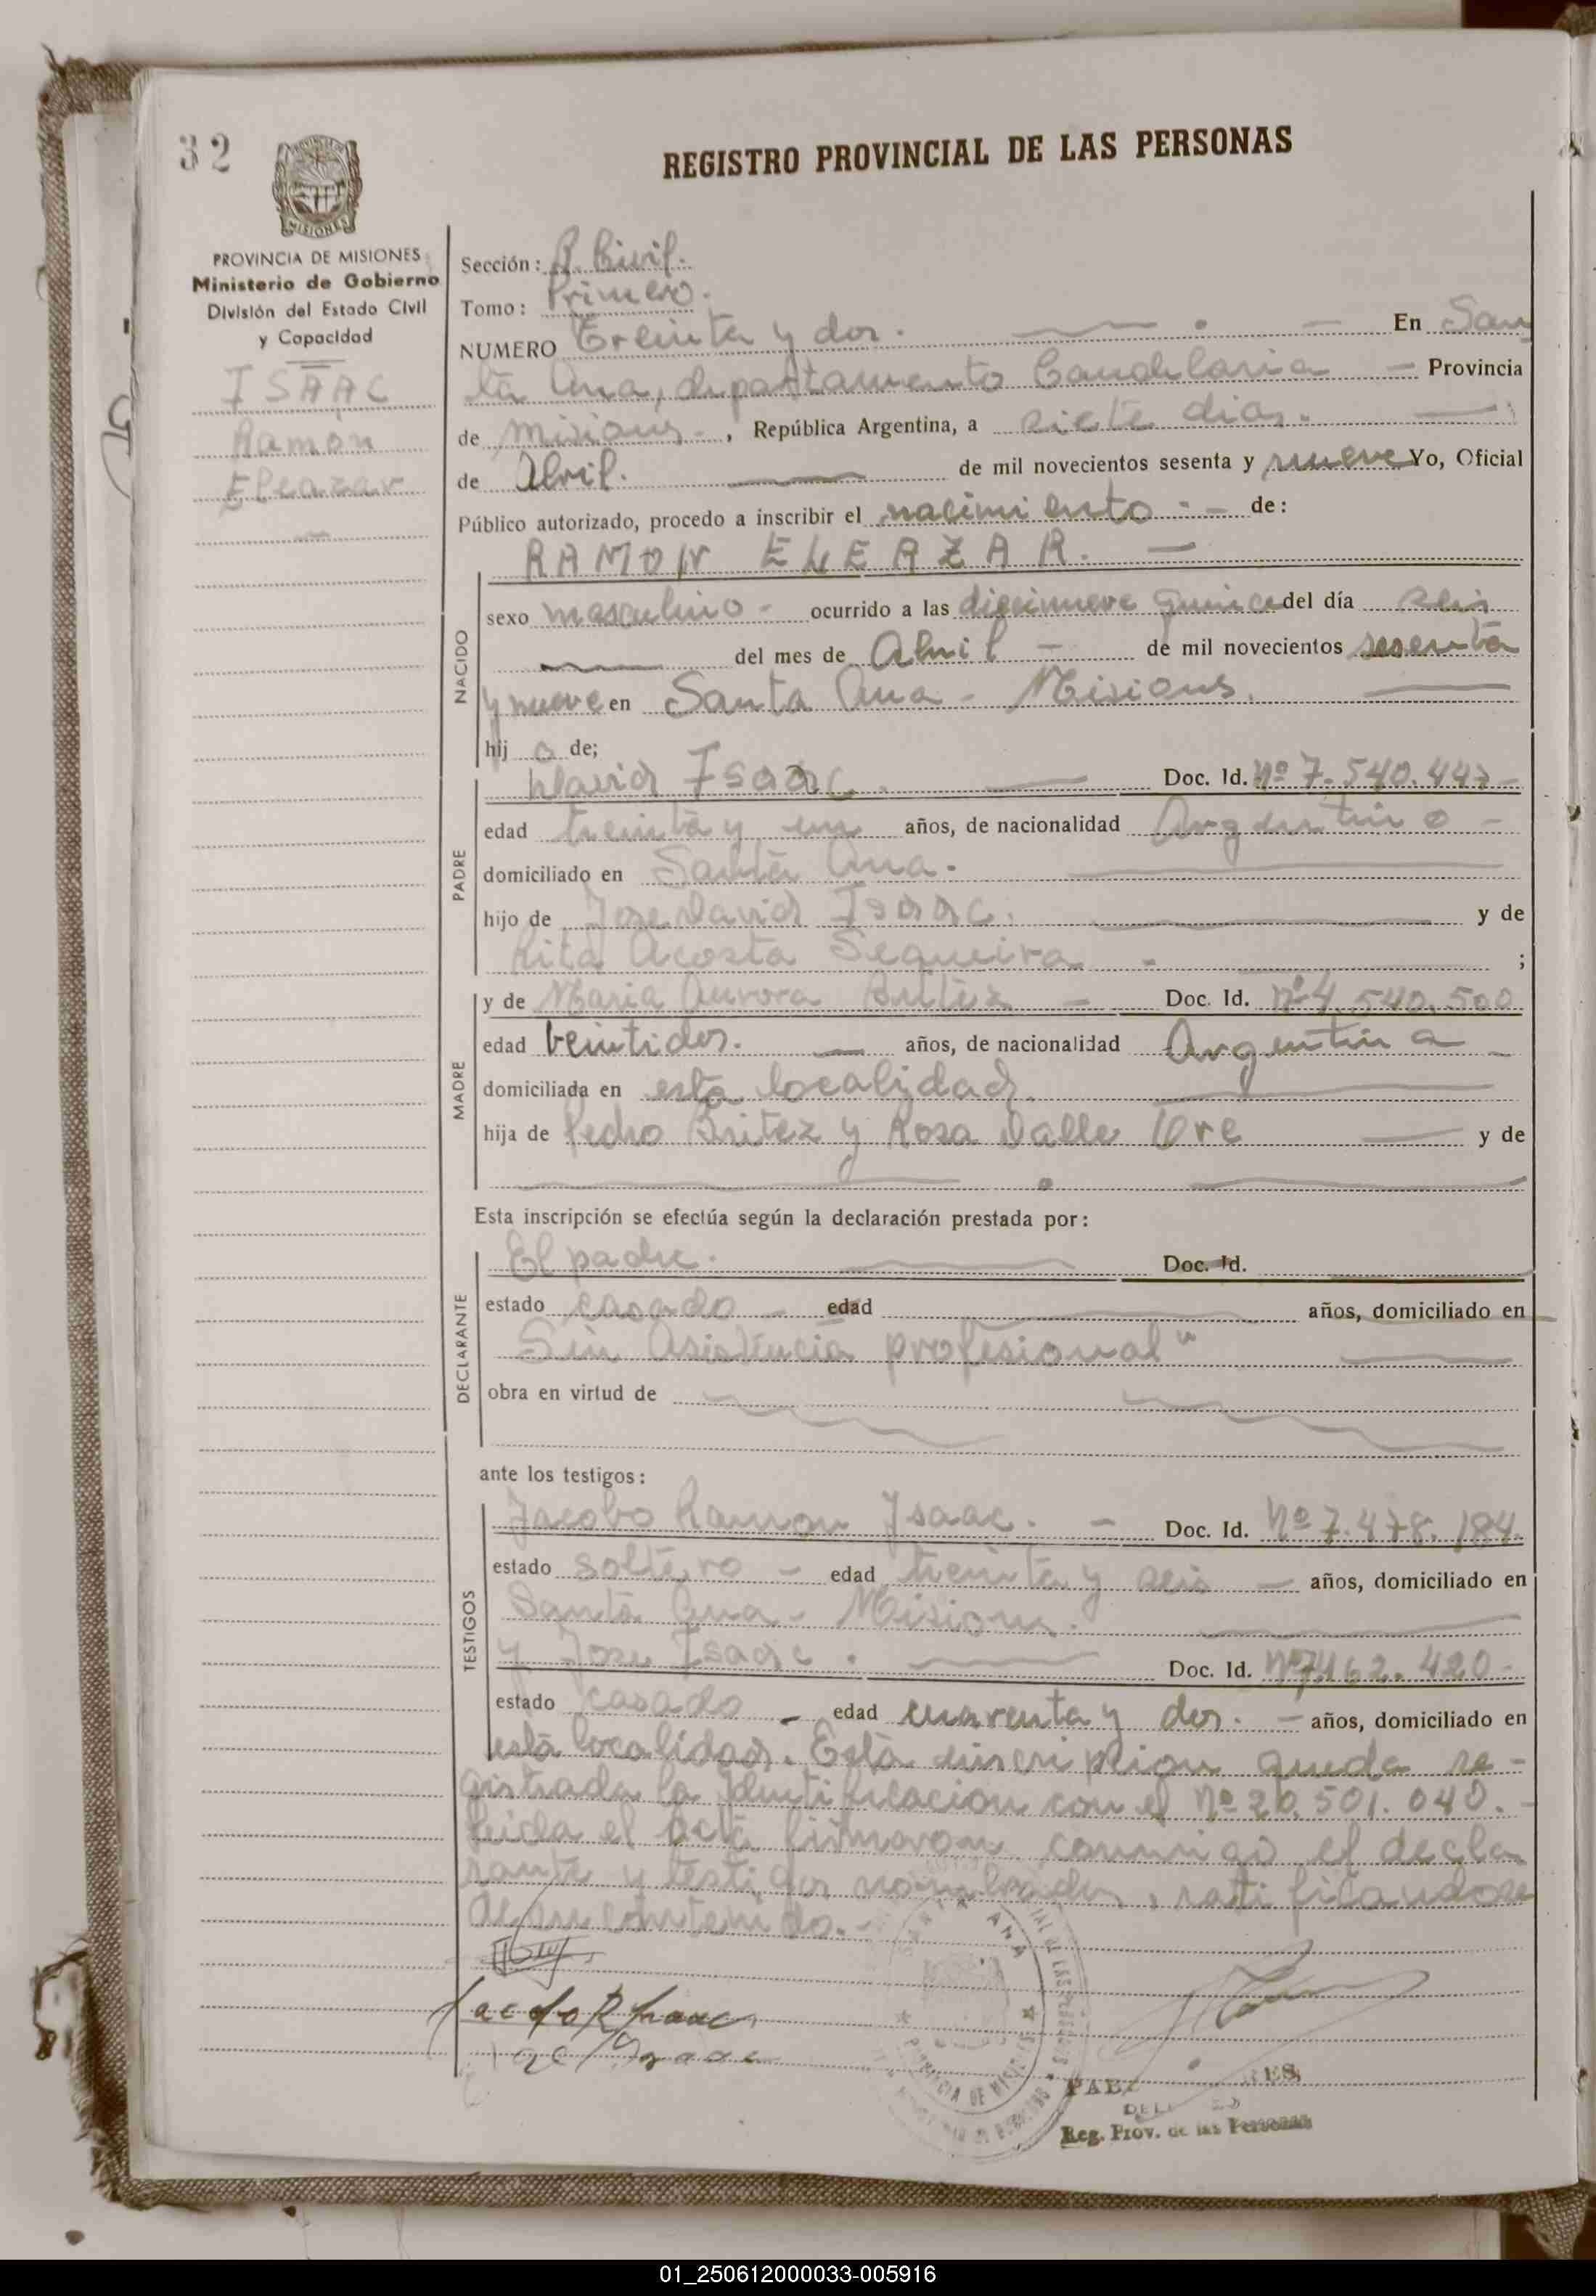 32
REGISTRO PROVINCIAL DE LAS PERSONAS
MISIONES
PROVINCIA DE MISIONES
Ministerio de Gobierno
División del Estado Civil
y Capacidad
ISAAC
Ramón
Eleazar
Sección: R. Civil.
Tomo: Primero.
NUMERO Treinta y dos. En San
ta Ana, departamento Candelaria Provincia
de Misiones, República Argentina, a siete dias.
de Abril. de mil novecientos sesenta y nueve Yo, Oficial
Público autorizado, procedo a inscribir el nacimiento de:
RAMON ELEAZAR.
NACIDO
sexo masculino ocurrido a las diecinueve quince del día seis
del mes de Abril de mil novecientos sesenta
y nueve en Santa Ana - Misiones.
hij o de;
PADRE
David Isaac. Doc. Id. Nº 7.540.447
edad treinta y un años, de nacionalidad Argentino
domiciliado en Santa Ana.
hijo de Jose David Isaac. y de
Rita Acosta Sequeira ;
MADRE
y de Maria Aurora Britez Doc. Id. Nº 4.540.500
edad veintidos. años, de nacionalidad Argentina
domiciliada en esta localidad.
hija de Pedro Britez y Rosa Valle y de
Esta inscripción se efectúa según la declaración prestada por:
DECLARANTE
El padre. Doc. Id.
estado casado edad años, domiciliado en
Sin Asistencia profesional"
obra en virtud de
ante los testigos:
TESTIGOS
Jacobo Ramon Isaac. Doc. Id. Nº 7.478.184.
estado soltero edad treinta y seis años, domiciliado en
Santa Ana - Misiones.
y Jose Isaac. Doc. Id. Nº 7.162.420
estado casado edad cuarenta y dos. años, domiciliado en
esta localidad. Esta inscripcion queda re-
gistrada la Identificacion con el Nº 20.501.040.
Leida el acta firmaron conmigo el decla
rante y testigos nombrados, ratificandose
de su contenido.
SANTA ANA
Jacobo R Isaac
Reg. Prov. de las Personas
01_250612000033-005916